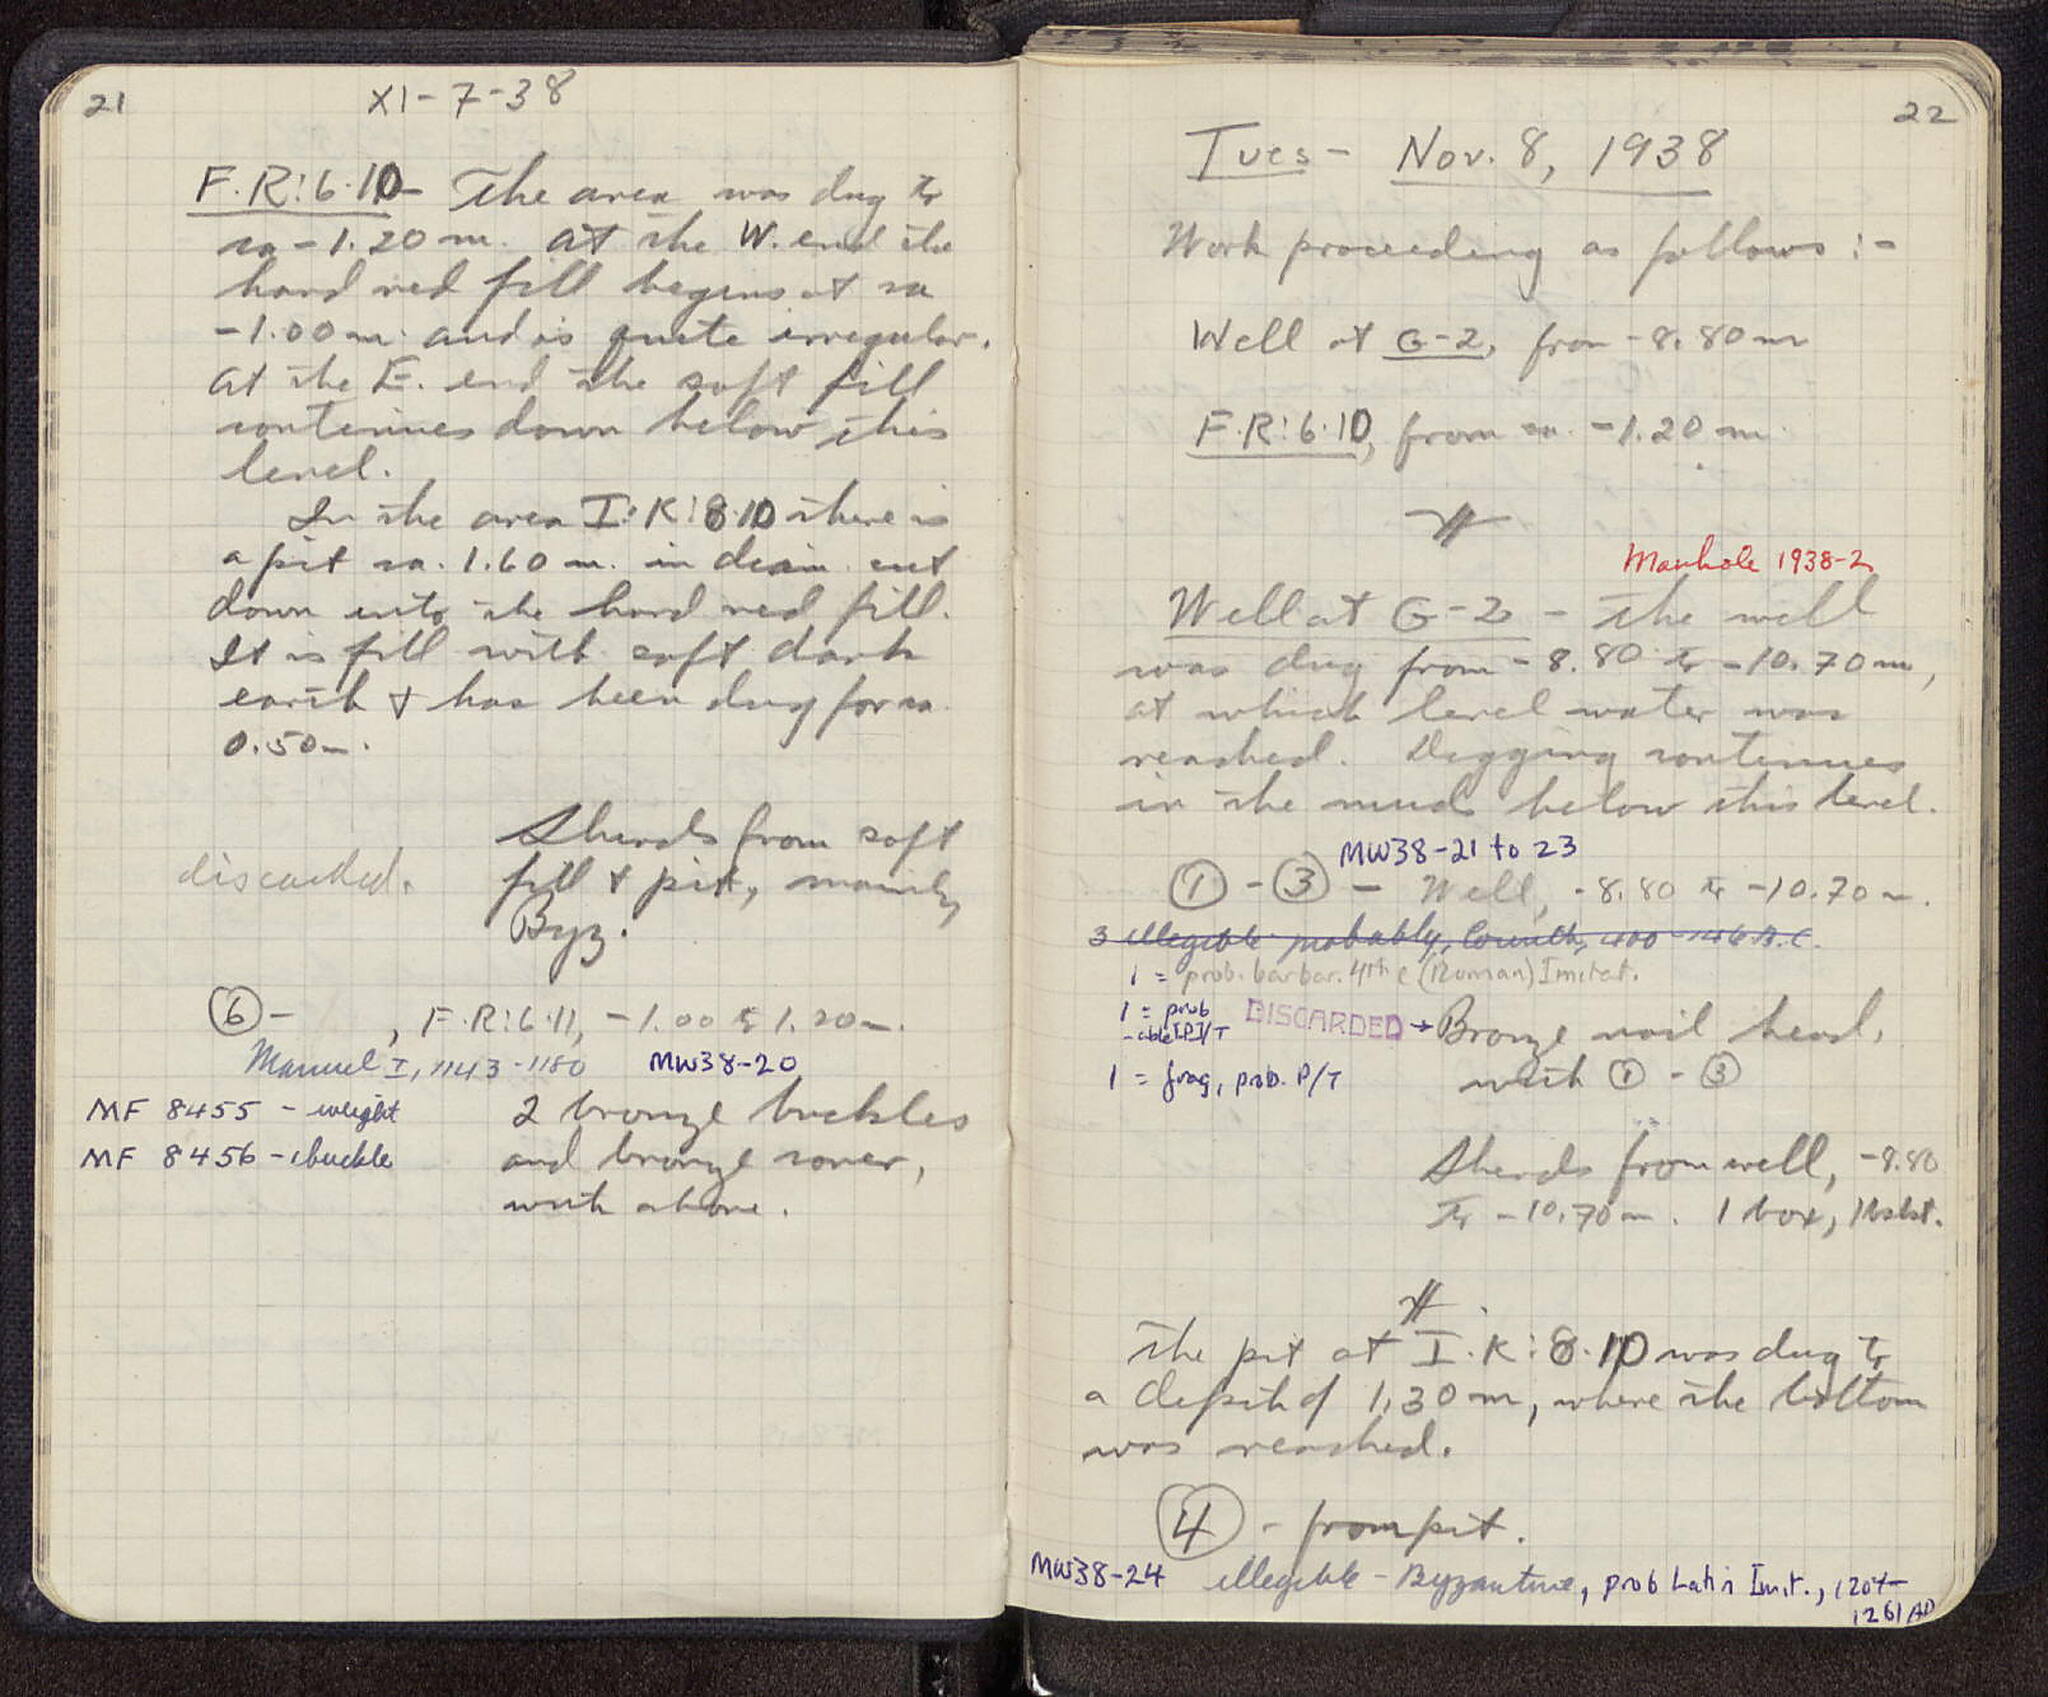 21
XI-7-38
F.R:6.10- The area was dug to
ca -1.20 m. At the W. end the
hard red fill begins at ca
-1.00 m. and is quite irregular.
At the E. end the soft fill
continues down below this
level.
In the area I.K:8.10 there is
a pit ca. 1.60 m. in diam. cut
down into the hard red fill.
It is fill with soft dark
earth + has been dug for ca.
0.50 m.
Sherds from soft
discarded. fill + pit, mainly
Byz.
⑥- , F.R:6.11, -1.00 to 1.20 m.
Manuel I, 1143-1180 MW38-20
MF 8455 - weight 2 bronze buckles
MF 8456 - buckle and bronze cover,
with above.
22
Tues - Nov. 8, 1938
Work proceeding as follows :-
Well at G-2, from -8.80 m
F.R:6.10, from ca. -1.20 m.
Manhole 1938-2
Well at G-2 - The well
was dug from -8.80 to -10.70 m,
at which level water was
reached. Digging continues
in the mud below this level.
MW38-21 to 23
① - ③ - Well, -8.80 to -10.70 m.
3 illegible probably, Corinth, 400-146 B.C.
1 = prob. barbar. 4th c (Roman) Imitat.
1 = prob
-able P/T DISCARDED → Bronze nail head,
1 = frag, prob. P/T with ① - ③
Sherds from well, -8.80
to -10.70 m. 1 box, 1 bskt.
The pit at I.K:8.10 was dug to
a depth of 1.30 m, where the bottom
was reached.
④ - from pit.
MW38-24 illegible - Byzantine, prob Latin Imit., 1204-
1261 AD